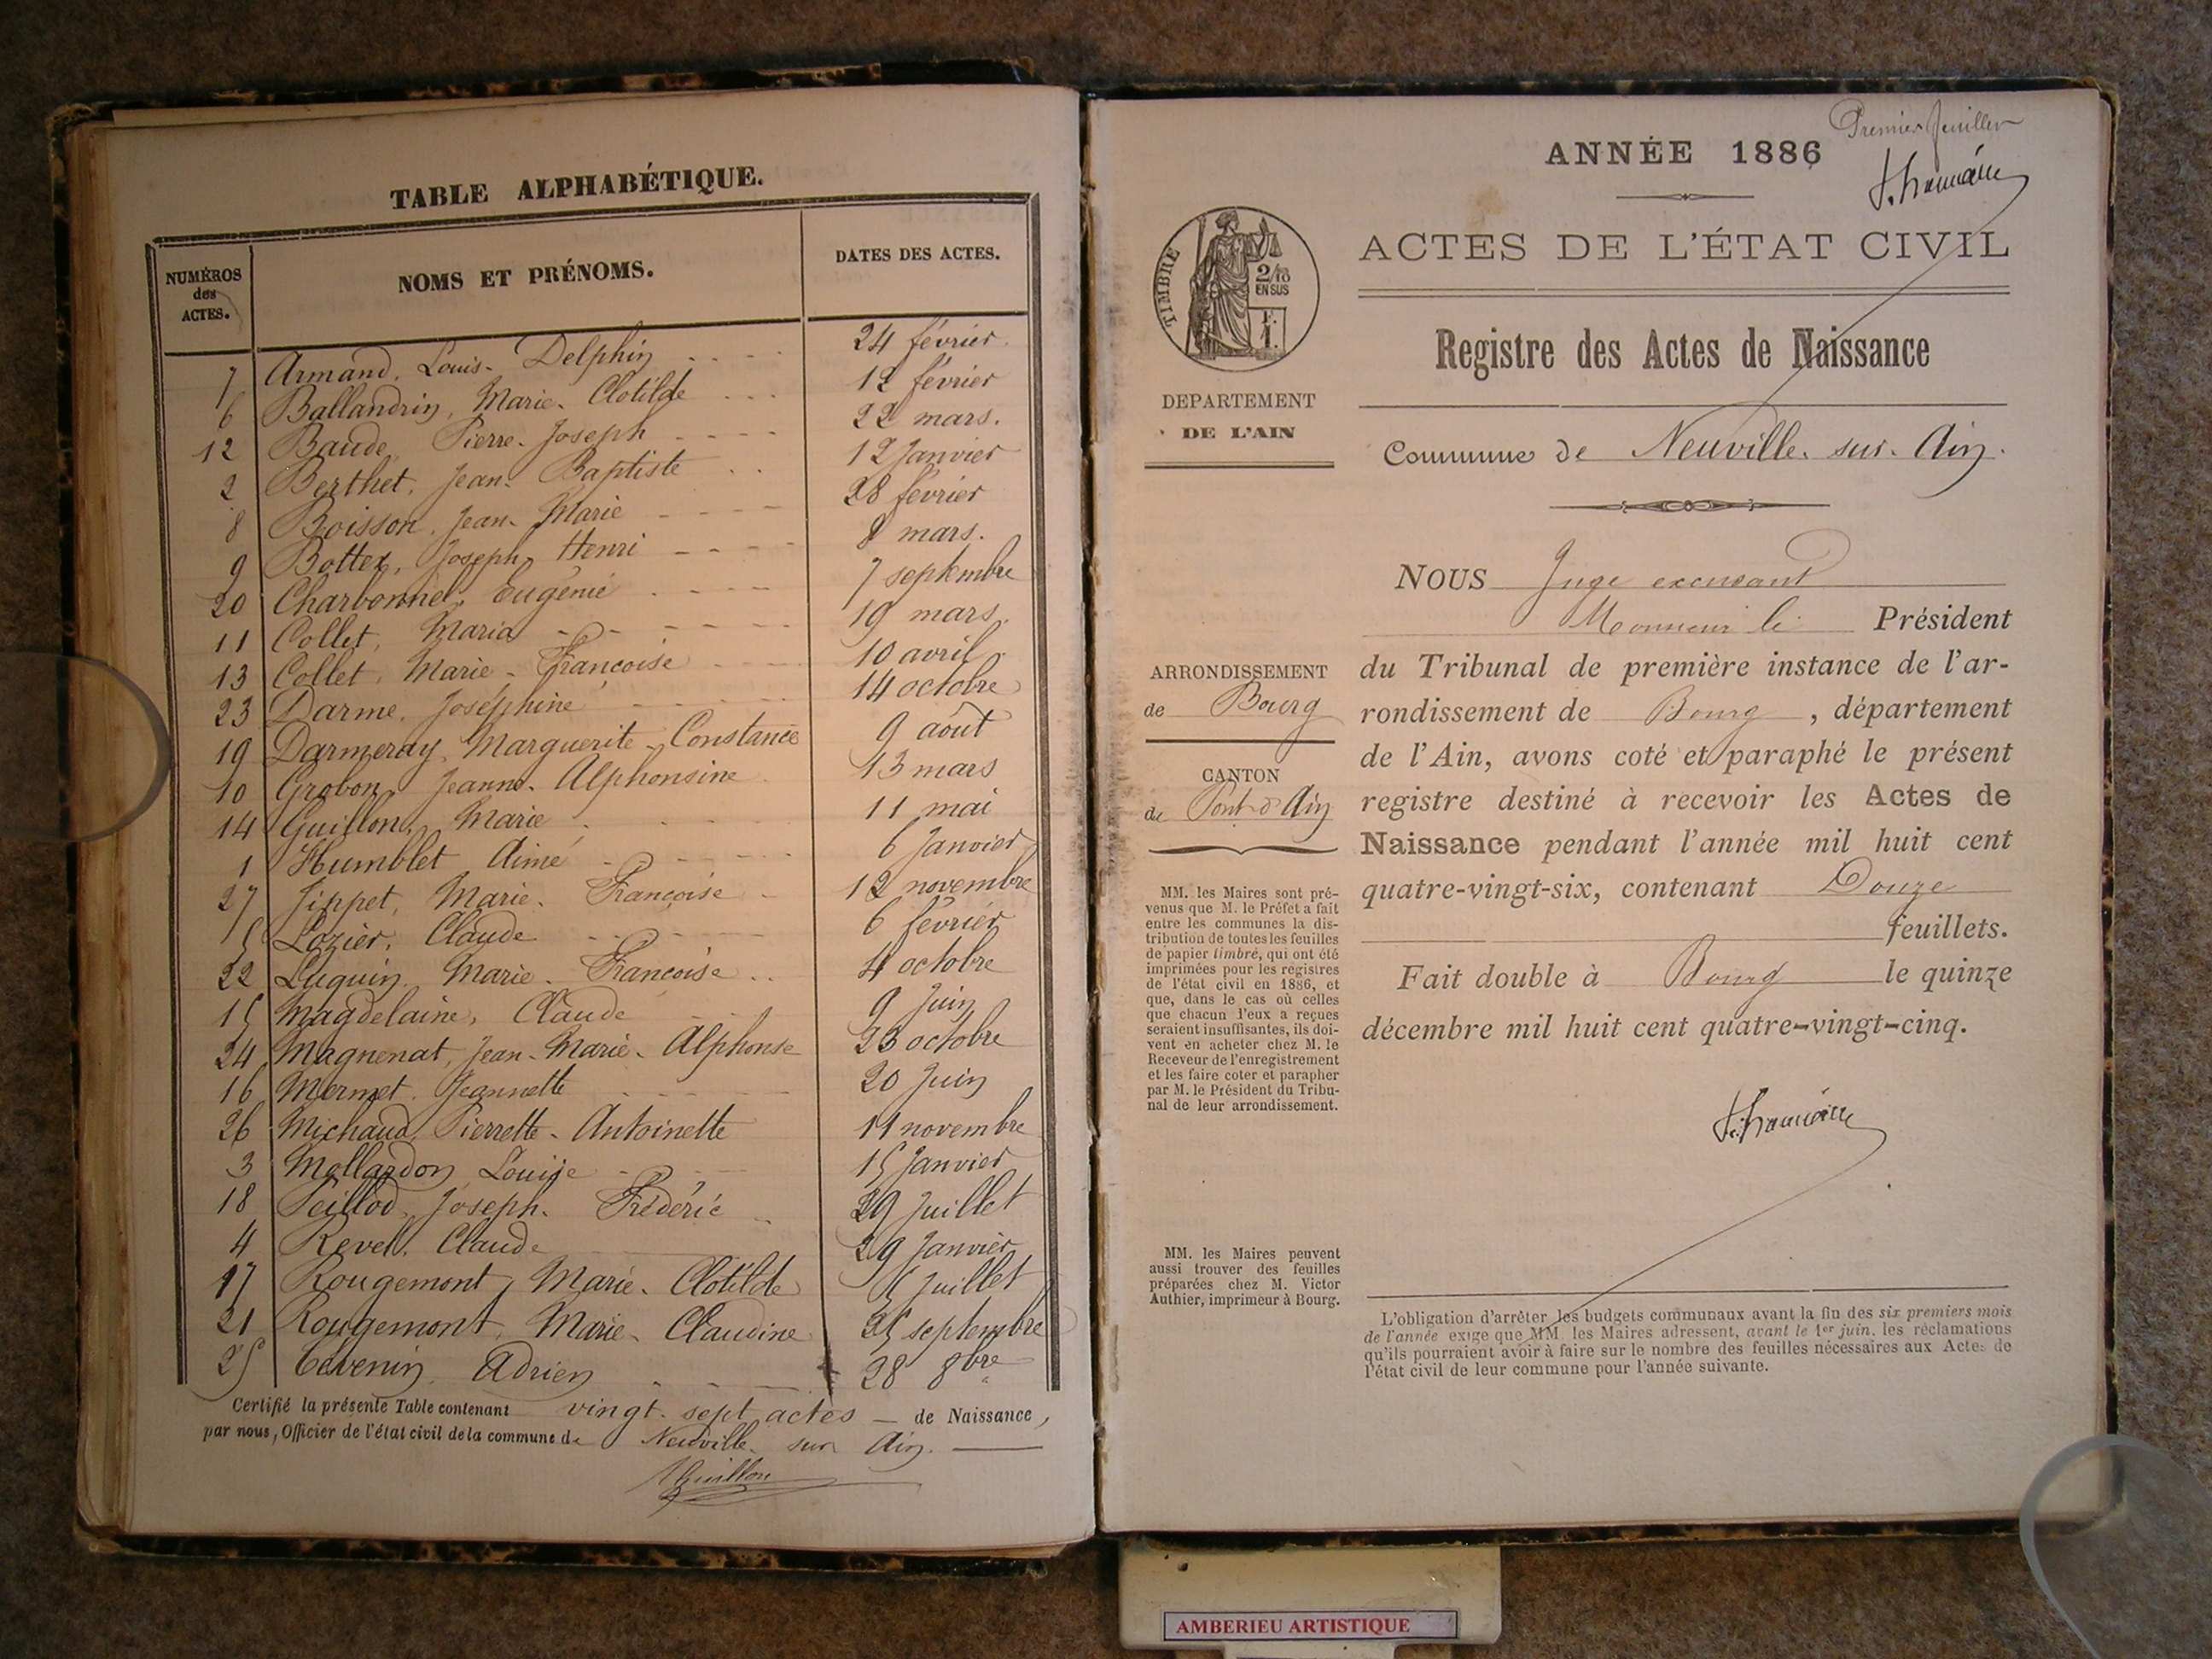 TABLE ALPHABÉTIQUE.
NUMÉROS des ACTES.
NOMS ET PRÉNOMS.
DATES DES ACTES.
7 Armand, Louis-Delphin 24 février
6 Ballandrin, Marie-Clotilde 12 février
12 Baude, Pierre-Joseph 22 mars.
2 Berthet, Jean-Baptiste 12 Janvier
8 Boisson, Jean-Marie 28 février
9 Bottex, Joseph, Henri 8 mars.
20 Charbonnel, Eugénie 7 septembre
11 Collet, Maria 19 mars.
13 Collet, Marie-Françoise 10 avril
23 Darme, Joséphine 14 octobre
19 Darmeray, Marguerite-Constance 9 août
10 Grobon, Jeanne-Alphonsine 13 mars
14 Guillon, Marie 11 mai
1 Humblet Aimé 6 Janvier
27 Jippet, Marie-Françoise 12 novembre
5 Lozier, Claude 6 février
22 Luquin, Marie-Françoise 4 octobre
15 Magdelaine, Claude 9 Juin
24 Magnenat, Jean-Marie-Alphonse 23 octobre
16 Mermet, Jeannette 20 Juin
26 Michaud, Pierrette-Antoinette 11 novembre
3 Mollardon, Louise 15 Janvier
18 Peillod, Joseph-Frédéric 29 Juillet
4 Revel, Claude 29 Janvier
17 Rougemont, Marie-Clotilde 5 Juillet
21 Rougemont, Marie-Claudine 25 septembre
25 Tévenin, Adrien 28 8bre
Certifié la présente Table contenant vingt-sept actes de Naissance,
par nous, Officier de l'état civil de la commune de Neuville-sur Ain.
Guillon
Premier feuillet
ANNÉE 1886
TIMBRE
2/10
EN SUS
ACTES DE L'ÉTAT CIVIL
Registre des Actes de Naissance
DEPARTEMENT
DE L'AIN
Commune de Neuville-sur-Ain.
NOUS Juge excusant
Monsieur le Président
du Tribunal de première instance de l'ar-
rondissement de Bourg, département
de l'Ain, avons coté et paraphé le présent
registre destiné à recevoir les Actes de
Naissance pendant l'année mil huit cent
quatre-vingt-six, contenant Douze
feuillets.
Fait double à Bourg le quinze
décembre mil huit cent quatre-vingt-cinq.
ARRONDISSEMENT
de Bourg
CANTON
de Pont-d'Ain
MM. les Maires sont pré-
venus que M. le Préfet a fait
entre les communes la dis-
tribution de toutes les feuilles
de papier timbré, qui ont été
imprimées pour les registres
de l'état civil en 1886, et
que, dans le cas où celles
que chacun d'eux a reçues
seraient insuffisantes, ils doi-
vent en acheter chez M. le
Receveur de l'enregistrement
et les faire coter et parapher
par M. le Président du Tribu-
nal de leur arrondissement.
MM. les Maires peuvent
aussi trouver des feuilles
préparées chez M. Victor
Authier, imprimeur à Bourg.
L'obligation d'arrêter les budgets communaux avant la fin des six premiers mois
de l'année exige que MM. les Maires adressent, avant le 1er juin, les réclamations
qu'ils pourraient avoir à faire sur le nombre des feuilles nécessaires aux Actes de
l'état civil de leur commune pour l'année suivante.
AMBERIEU ARTISTIQUE